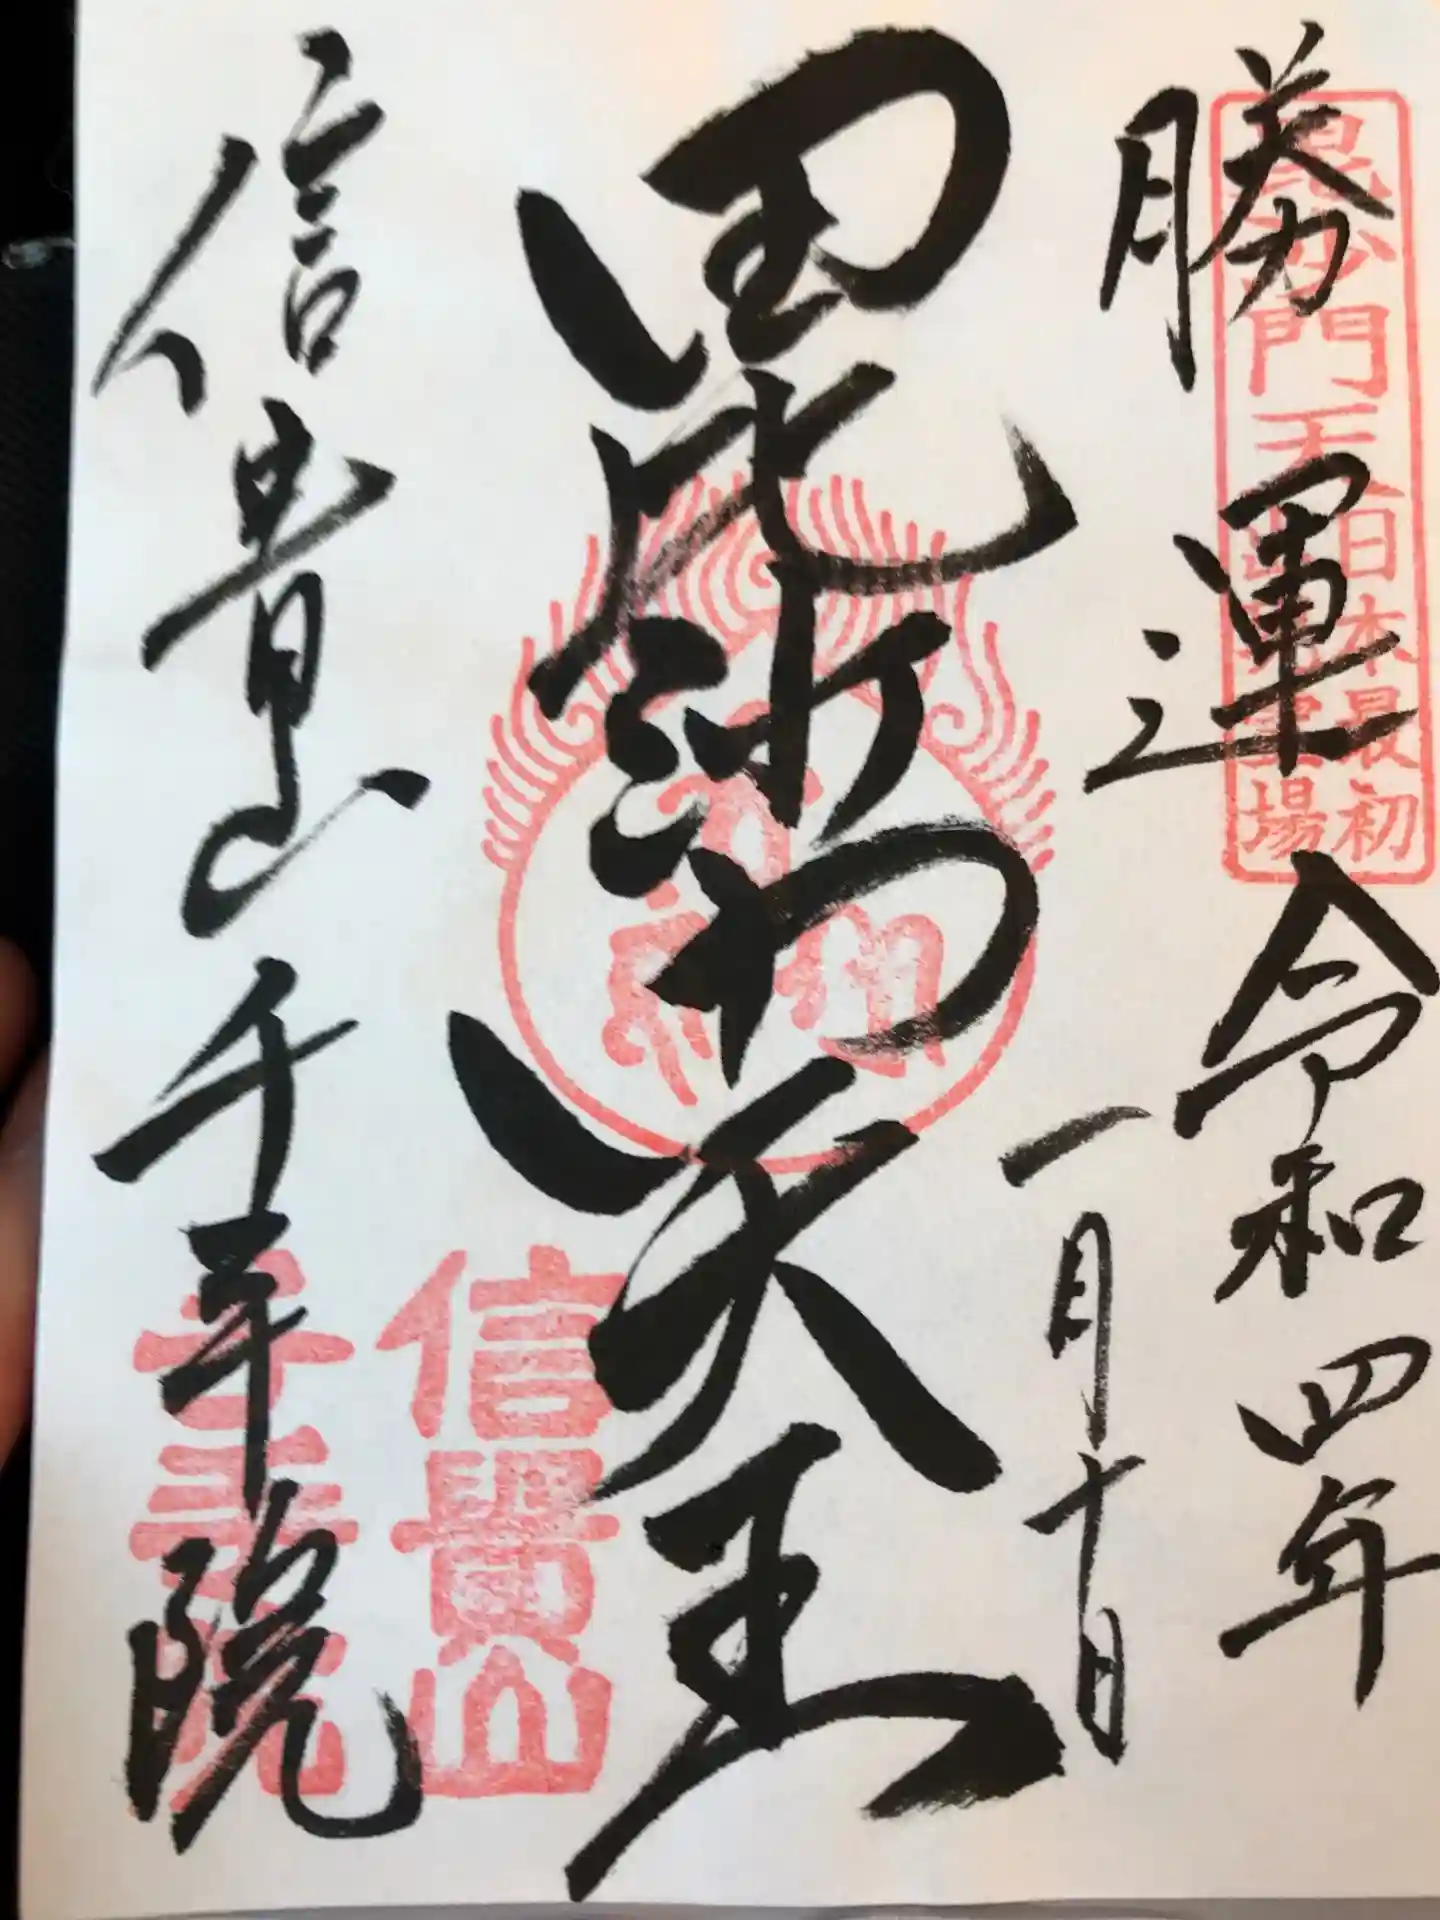 勝運
令和四年
一月十日
毘沙門天王
信貴山千手院
毘沙門天王
日本最初
出現霊場
信貴山
千手院